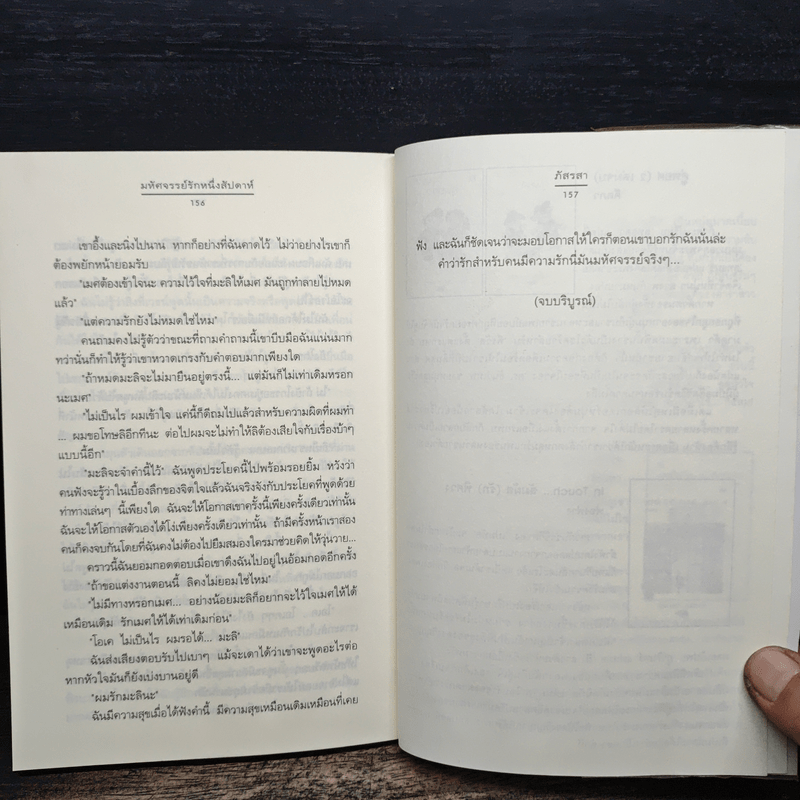 มหัศจรรย์รักหนึ่งสัปดาห์
156
เขาอึ้งและนิ่งไปนาน หากก็อย่างที่ฉันคาดไว้ ไม่ว่าอย่างไรเขาก็
ต้องพยักหน้ายอมรับ
"เมศต้องเข้าใจนะ ความไว้ใจที่มะลิให้เมศ มันถูกทำลายไปหมด
แล้ว"
"แต่ความรักยังไม่หมดใช่ไหม"
คนถามคงไม่รู้ตัวว่าขณะที่ถามคำถามนี้เขาบีบมือฉันแน่นมาก
ทว่านั่นก็ทำให้รู้ว่าเขาหวาดเกรงกับคำตอบมากเพียงใด
"ถ้าหมดมะลิจะไม่มายืนอยู่ตรงนี้... แต่มันก็ไม่เท่าเดิมหรอก
นะเมศ"
"ไม่เป็นไร ผมเข้าใจ แค่นี้ก็ดีถมไปแล้วสำหรับความผิดที่ผมทำ
... ผมขอโทษลิอีกทีนะ ต่อไปผมจะไม่ทำให้ลิต้องเสียใจกับเรื่องบ้าๆ
แบบนี้อีก"
"มะลิจะจำคำนี้ไว้" ฉันพูดประโยคนี้ไปพร้อมรอยยิ้ม หวังว่า
คนฟังจะรู้ว่าในเบื้องลึกของจิตใจแล้วฉันจริงจังกับประโยคที่พูดด้วย
ท่าทางเล่นๆ นี้เพียงใด ฉันจะให้โอกาสเขาครั้งนี้เพียงครั้งเดียวเท่านั้น
ฉันจะให้โอกาสตัวเองได้โง่เพียงครั้งเดียวเท่านั้น ถ้ามีครั้งหน้าเราสอง
คนก็คงจบกันโดยที่ฉันคงไม่ต้องไปยืมสมองใครมาช่วยคิดให้วุ่นวาย...
คราวนี้ฉันยอมกอดตอบเมื่อเขาดึงฉันไปอยู่ในอ้อมกอดอีกครั้ง
"ถ้าขอแต่งงานตอนนี้ ลิคงไม่ยอมใช่ไหม"
"ไม่มีทางหรอกเมศ... อย่างน้อยมะลิก็อยากจะไว้ใจเมศให้ได้
เหมือนเดิม รักเมศให้ได้เท่าเดิมก่อน"
"โอเค ไม่เป็นไร ผมรอได้... มะลิ"
ฉันส่งเสียงตอบรับไปเบาๆ แม้จะเดาได้ว่าเขาจะพูดอะไรต่อ
หากหัวใจมันก็ยังเบ่งบานอยู่ดี
"ผมรักมะลินะ"
ฉันมีความสุขเมื่อได้ฟังคำนี้ มีความสุขเหมือนเดิมเหมือนที่เคย
ภัสรสา
157
ฟัง และฉันก็ชัดเจนว่าจะมอบโอกาสให้ใครก็ตอนเขาบอกรักฉันนั่นล่ะ
คำว่ารักสำหรับคนมีความรักนี่มันมหัศจรรย์จริงๆ...
(จบบริบูรณ์)